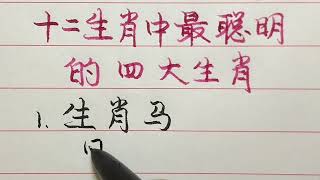 十二生肖中最聪明
的四大生肖
1.生肖马